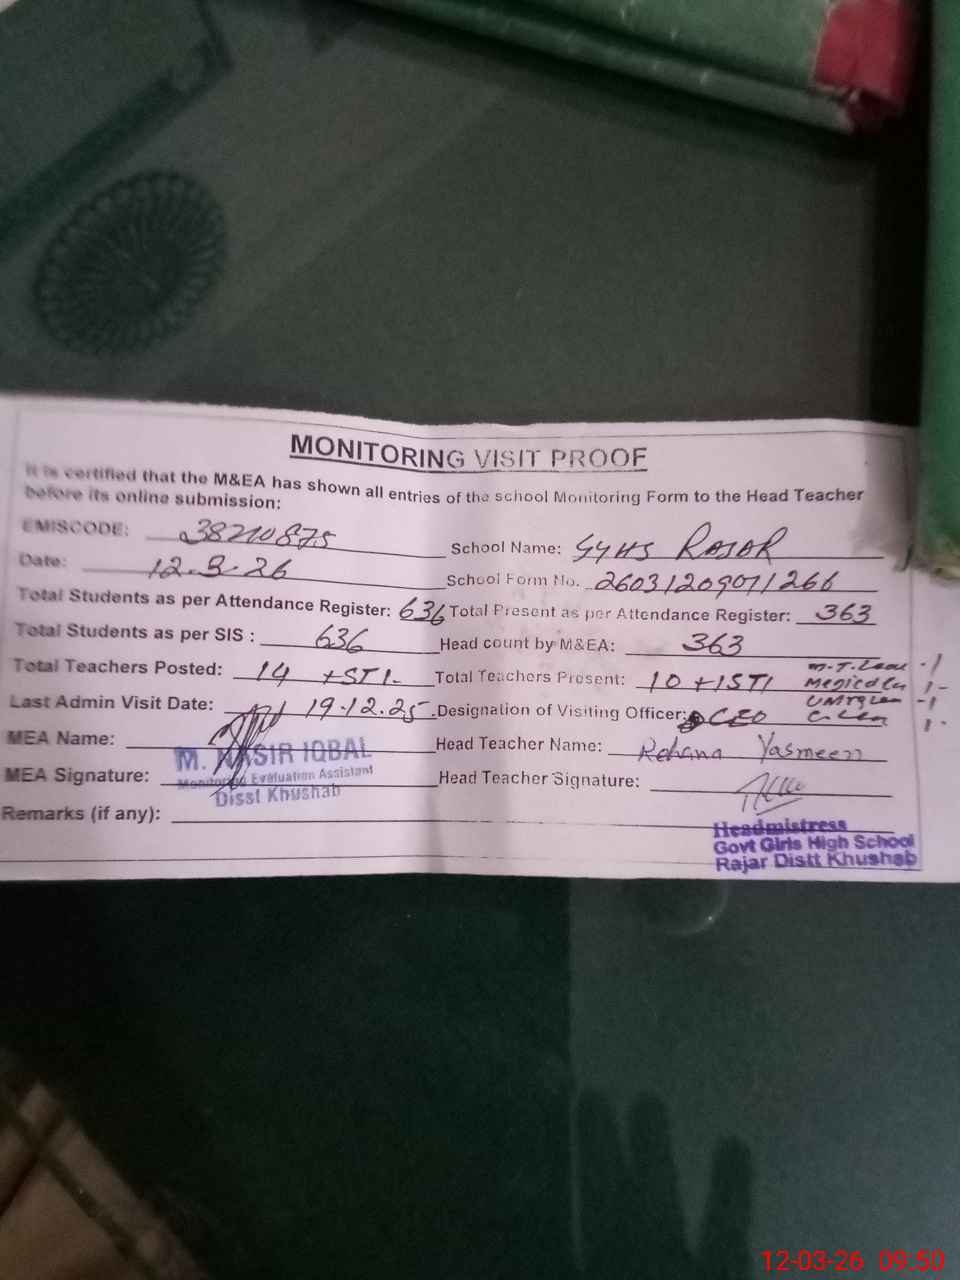 MONITORING VISIT PROOF
It is certified that the M&EA has shown all entries of the school Monitoring Form to the Head Teacher
before its online submission:
EMISCODE: 38210875 School Name: GGHS RAJAR
Date: 12.3.26 School Form No. 26031209071266
Total Students as per Attendance Register: 636 Total Present as per Attendance Register: 363
Total Students as per SIS : 636 Head count by M&EA: 363
Total Teachers Posted: 14 +STI- Total Teachers Present: 10 +1STI
M.T. Leave -1
Medical 1-
-1
C. Leave 1-
Last Admin Visit Date: 19.12.25 Designation of Visiting Officer: CEO
MEA Name: Head Teacher Name: Rehana Yasmeen
M. NASIR IQBAL
Monitoring Evaluation Assistant
Disst Khushab
MEA Signature: Head Teacher Signature:
Remarks (if any):
Headmistress
Govt Girls High School
Rajar Distt Khushab
12-03-26 09:50